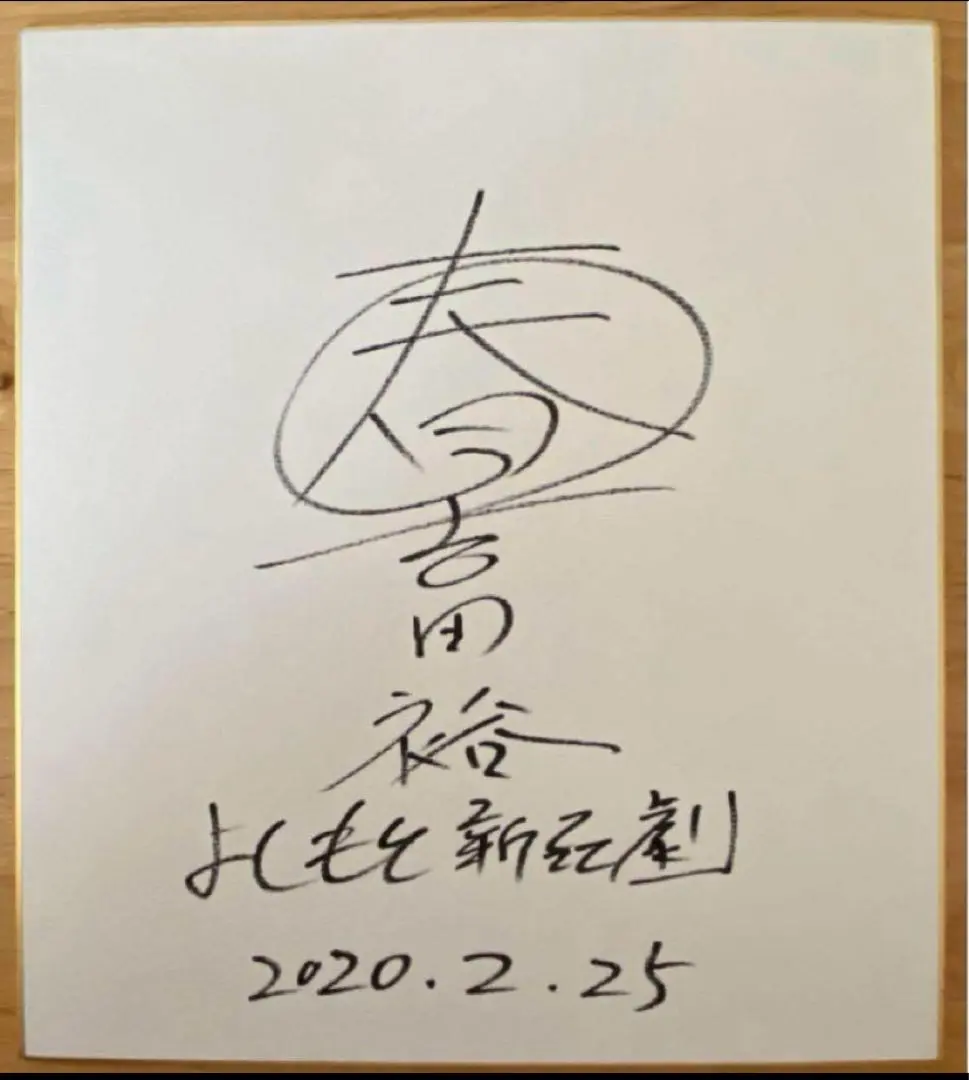 春
吉
田
裕
よしもと新喜劇
2020.2.25